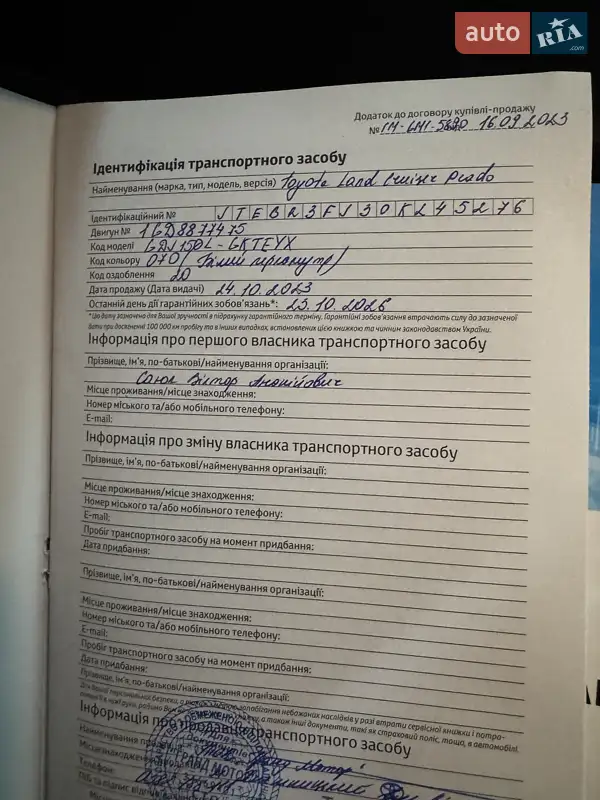 auto RIA.com
Додаток до договору купівлі-продажу
№ ІМ-6МІ-5690 16.09.2023
Ідентифікація транспортного засобу
Найменування (марка, тип, модель, версія) Toyota Land Cruiser Prado
Ідентифікаційний № JTEBR3FJ30K245276
Двигун № 1GD8877475
Код моделі GDJ150L-GKTEYX
Код кольору 070 (Білий перламутр)
Код оздоблення 20
Дата продажу (Дата видачі) 24.10.2023
Останній день дії гарантійних зобов'язань*: 23.10.2026
* Цю дату зазначено для Вашої зручності в підрахунку гарантійного терміну. Гарантійні зобов'язання втрачають силу до зазначеної
дати при досягненні 100 000 км пробігу та в інших випадках, встановлених цією книжкою та чинним законодавством України.
Інформація про першого власника транспортного засобу
Прізвище, ім'я, по-батькові/найменування організації:
Віктор
Місце проживання/місце знаходження:
Номер міського та/або мобільного телефону:
E-mail:
Інформація про зміну власника транспортного засобу
Прізвище, ім'я, по-батькові/найменування організації:
Місце проживання/місце знаходження:
Номер міського та/або мобільного телефону:
E-mail:
Пробіг транспортного засобу на момент придбання:
Дата придбання:
Прізвище, ім'я, по-батькові/найменування організації:
Місце проживання/місце знаходження:
Номер міського та/або мобільного телефону:
E-mail:
Пробіг транспортного засобу на момент придбання:
Дата придбання:
Прізвище, ім'я, по-батькові/найменування організації:
Для Вашої персональної безпеки, а запобігання небажаних наслідків у разі втрати сервісної книжки і потра-
а також інші документи, такі як страховий поліс, тощо, в автомобілі.
Інформація про продавця транспортного засобу
Найменування
Місцезнаходження
Телефон: